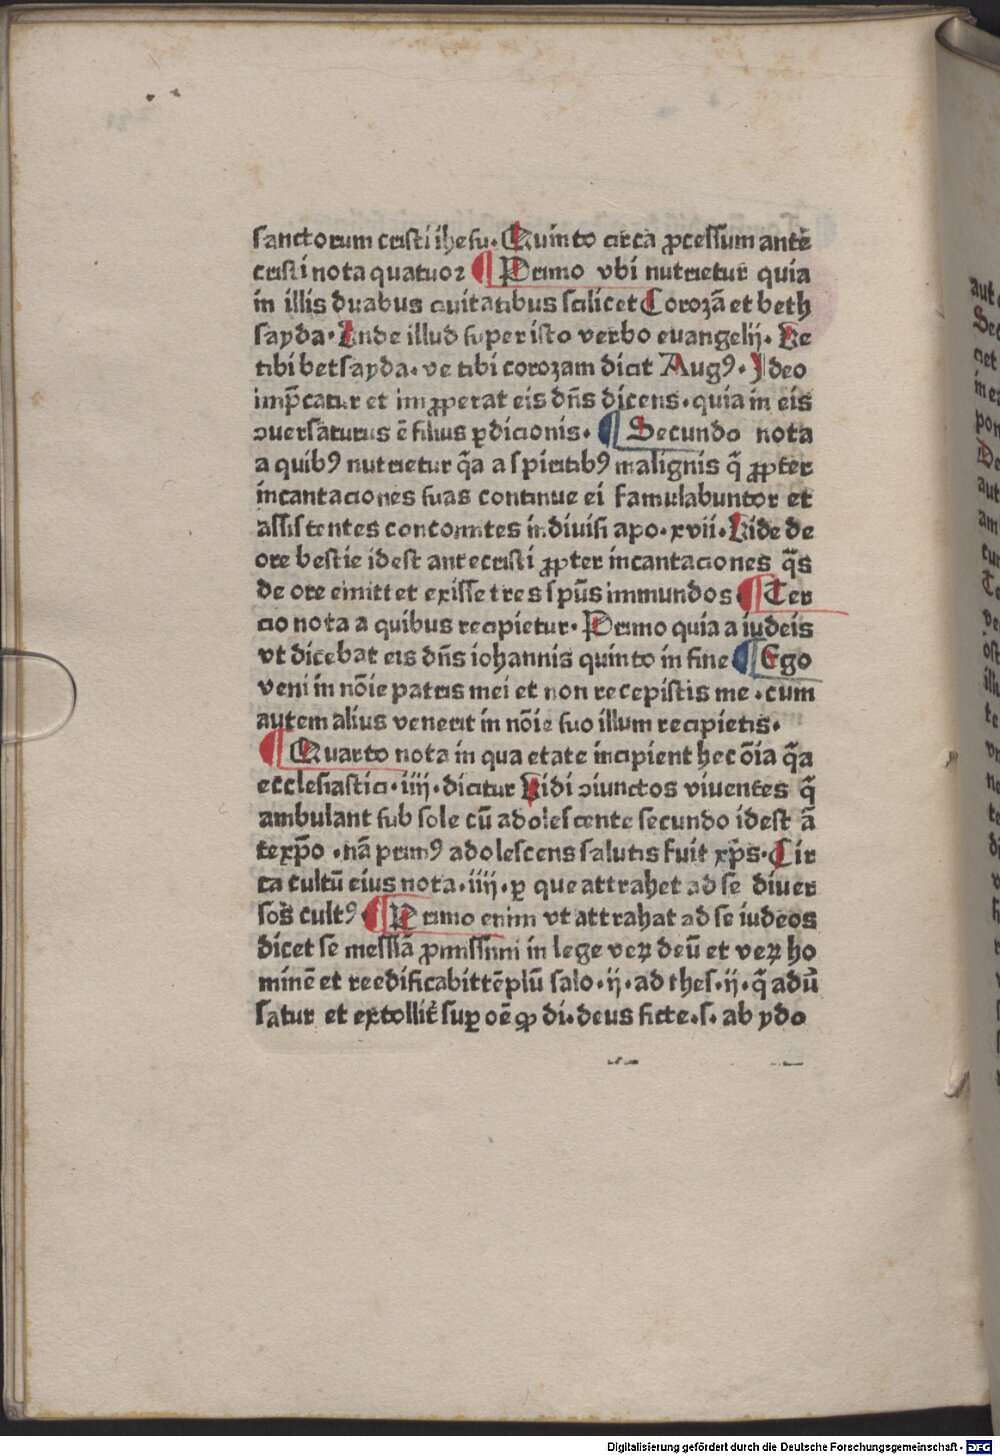 sanctorum cristi ihesu. Quinto circa ꝓcessum antē
cristi nota quatuor ¶ Primo vbi nutrietur quia
in illis duabus ciuitatibus scilicet Corozā et beth
sayda. Unde illud super isto verbo euangelij. Ve
tibi betsayda. ve tibi corozam dicit Augꝰ. Ideo
imp̄catur et imꝓperat eis dn̄s dicens. quia in eis
ↄuersaturus ē filius ꝑdicionis. ¶ Secundo nota
a quibꝰ nutrietur q̄a a spiritibꝰ malignis q̄ ꝓpter
incantaciones suas continue ei famulabuntor et
assistentes concomites indiuisi apo. xvii. Vide de
ore bestie idest antecristi ꝓpter incantaciones q̄s
de ore emittet exisse tres spūs immundos ¶ Ter
cio nota a quibus recipietur. Primo quia a iudeis
vt dicebat eis dn̄s iohannis quinto in fine ¶ Ego
veni in nōie patris mei et non recepistis me. cum
autem alius venerit in nōie suo illum recipietis.
¶ Quarto nota in qua etate incipient hec ōia q̄a
ecclesiastici. iiii. dicitur Vidi ↄiunctos viuentes q̄
ambulant sub sole cū adolescente secundo idest ā
texp̄o. nā primꝰ adolescens salutis fuit xp̄s. Cir
ca cultū eius nota. iiij. ꝑ que attrahet ad se diuer
sos cultꝰ. ¶ Primo enim vt attrahat ad se iudeos
dicet se messiā ꝓmissum in lege veꝝ deū et veꝝ ho
minē et reedificabit tēplū salo. ij. ad thes. ij. q̄ adū
satur et extollit̄ suꝑ oē ꝙ di. deus ficte. s. ab ydo
Digitalisierung gefördert durch die Deutsche Forschungsgemeinschaft - DFG